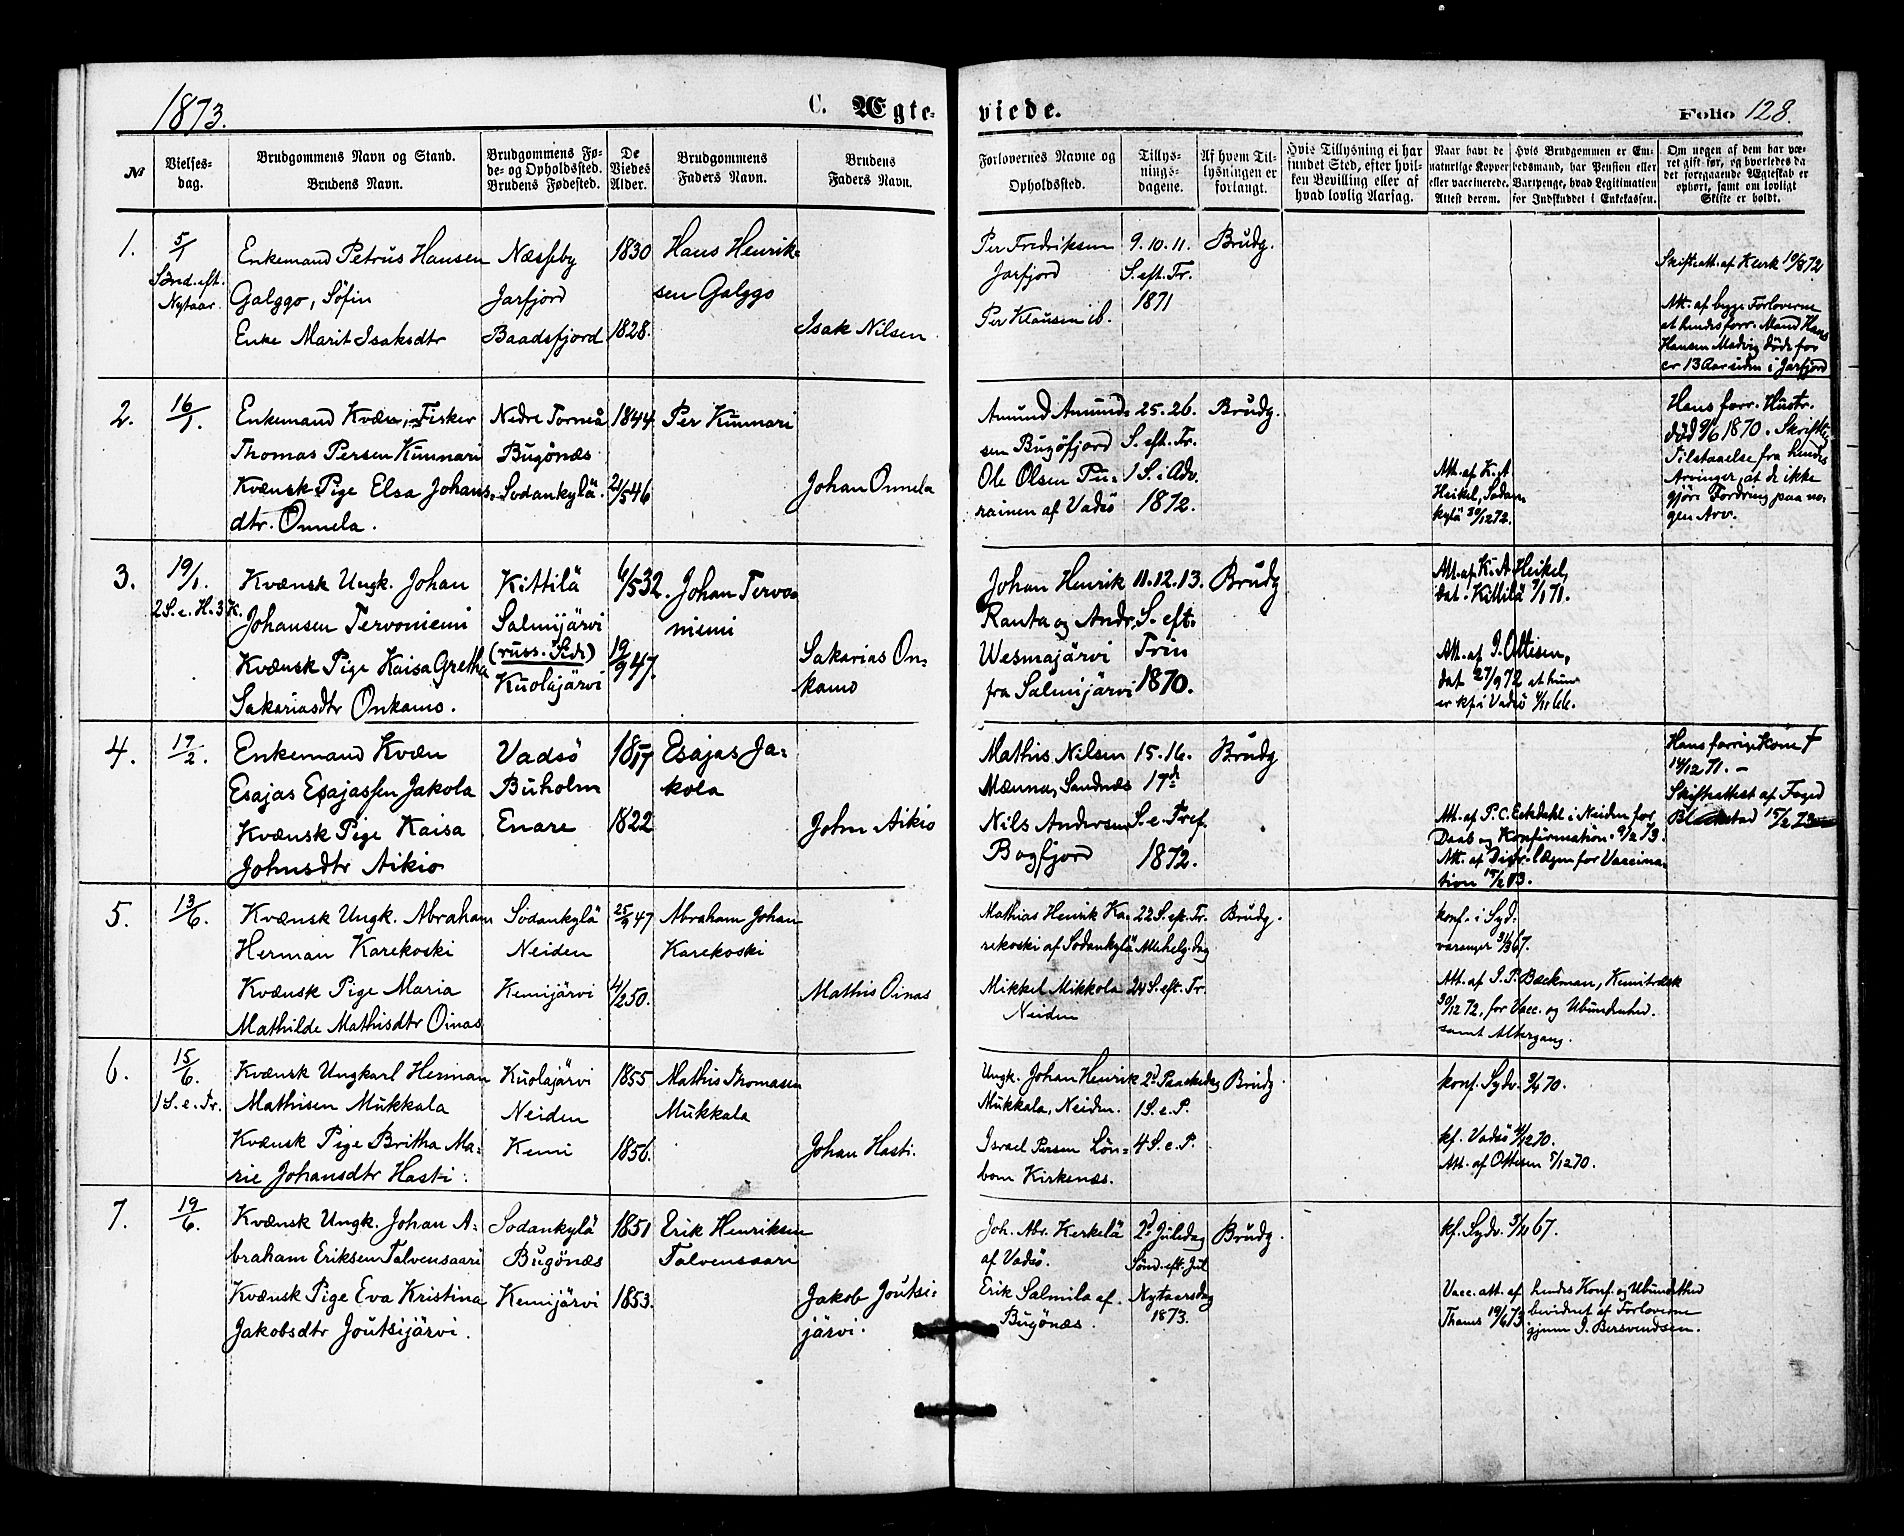 1873.
C. Ægteviede.
Folio 128.
№
Vielses-
dag.
Brudgommens Navn og Stand.
Brudens Navn.
Brudgommens Fø-
de- og Opholdssted.
Brudens Fødested.
De
Viedes
Alder.
Brudgommens
Faders Navn.
Brudens
Faders Navn.
Forlovernes Navne og
Opholdssted.
Tillys-
nings-
dagene.
Af hvem Til-
lysningen er
forlangt.
Hvis Tillysning ei har
fundet Sted, efter hvil-
ken Bevilling eller af
hvad lovlig Aarsag.
Naar havt de
naturlige Kopper
eller vaccinerede.
Attest derom.
Hvis Brudgommen er Em-
bedsmand, har Pension eller
Vartpenge, hvad Legitimation
for Indskuddet i Enkekassen.
Om nogen af dem har væ-
ret gift før, og hvorledes da
det foregaaende Ægteskab er
ophørt, samt om lovligt
Skifte er holdt.
1.
5/1
Sönd. eft.
Nytaar.
Enkemand Petrus Hansen
Galggo, Söfin
Enke Marit Isaksdtr
Næsseby
Jarfjord
Baadsfjord
1830
1828.
Hans Henrik-
sen Galggo
Isak Nilsen
Per Fredriksen
Jarfjord
Per Klausen ib.
9. 10. 11.
S. eft. Tr.
1871
Brudg.
Skifteatt. af Klerk 10/8 72
Att. af begge Forloverne
at hendes forr. Mand Hans
Hansen Madvig døde for
er 13 Aar siden i Jarfjord
2.
16/1.
Enkemand Kvæn, Fisker
Thomas Persen Kunnari
Kvænsk Pige Elsa Johans-
dtr. Onnela.
Nedre Torneå
Bugönæs
Sodankylä.
1844
21/5 46
Per Kunnari
Johan Onnela
Amund Amund-
sen Bugöfjord
Ole Olsen Pu-
rainen af Vadsö
25. 26.
S. eft. Tr.
1 S. i Adv.
1872.
Brudg.
Att. af K. A.
Heikel, Sodan-
kylä 30/12 72.
Hans forr. Hustr.
död 9/6 1870. Skriftlig
Tilstaaelse fra hendes
Arvinger, at de ikke
gjöre Fordring paa no-
gen Arv.
3.
19/1.
2 S. e. H. 3 K.
Kvænsk Ungk. Johan
Johansen Tervoniemi
Kvænsk Pige Kaisa Gretha
Sakariasdtr Onkamo.
Kittilä
Salmijärvi
(russ. Side)
Kuolajärvi
6/5 32.
19/9 47.
Johan Tervo-
niemi
Sakarias On-
kamo
Johan Henrik
Ranta og Andr.
Wesmajärvi
fra Salmijärvi
11. 12. 13.
S. eft.
Trin
1870.
Brudg
Att. af K. A. Heikel,
dat. Kittilä 7/1 71.
Att. af J. Ottesen,
dat 27/9 72 at hun
er kf. i Vadsö 4/11 66.
4.
17/2.
Enkemand Kvæn
Esajas Esajassen Jakola
Kvænsk Pige Kaisa
Johnsdtr Aikio
Vadsö
Buholm
Enare
1817
1822
Esajas Ja-
kola
John Aikio
Mathis Nilsen
Mænna, Sandnæs
Nils Andersen
Bogfjord
15. 16.
17de
S. e. Tref.
1872.
Brudg
Att. af P. C. Eekdahl i Neiden for
Daab og Konfirmation 9/2 73.
Att. af Distr. lægen for Vaccina-
tion 15/2 73.
Hans forrige Kone †
14/12 71. –
Skifteattest af Foged
Blackstad 15/2 73
5.
13/6.
Kvænsk Ungk. Abraham
Herman Karekoski
Kvænsk Pige Maria
Mathilde Mathisdtr Oinas
Sodankylä
Neiden
Kemijärvi
25/9 47
4/2 50.
Abraham Johan
Karekoski
Mathis Oinas
Mathias Henrik Ka-
rekoski af Sodankylä
Mikkel Mikkola
Neiden
22 S. ep. Tr.
Allehelg. dag
24 S. eft. Tr.
Brudg.
konf. i Syd-
varanger 31/3 67.
Att. af J. P. Backman, Kemiträsk
30/12 72, for Vacc. og Ubundenhed.
samt Altergang.
6.
15/6.
1 S. e. Tr.
Kvænsk Ungkarl Herman
Mathisen Mukkala
Kvænsk Pige Britha Ma-
rie Johansdtr Hasti.
Kuolajärvi
Neiden
Kemi
1855
1856.
Mathis Thomasen
Mukkala
Johan Hasti.
Ungk. Johan Henrik
Mukkala, Neiden.
Israel Persen Lön-
bom Kirkenæs.
2d Paaskedag
1 S. e. P.
4 S. e. P.
Brudg.
konf. Sydv. 3/4 70.
kf. Vadsö 4/12 70.
Att. af Ottesen 5/12 70.
7.
19/6.
Kvænsk Ungk. Johan A-
braham Eriksen Talvensaari
Kvænsk Pige Eva Kristina
Jakobsdtr Joutsijärvi.
Sodankylä
Bugönæs
Kemijärvi
1851
1853.
Erik Henriksen
Talvensaari
Jakob Joutsi-
järvi.
Joh. Abr. Kerkelä
af Vadsö.
Erik Salmila af
Bugönæs.
2d Juledag
Sönd. eft. Jul
Nytaarsdag
1873.
Brudg.
kf. Sydv. 31/3 67.
Vacc. att. af
Thams 19/6 73
hendes Konf. og Ubundethed
bevidnet af Forloverne
gjenn J. Bersvendsen.